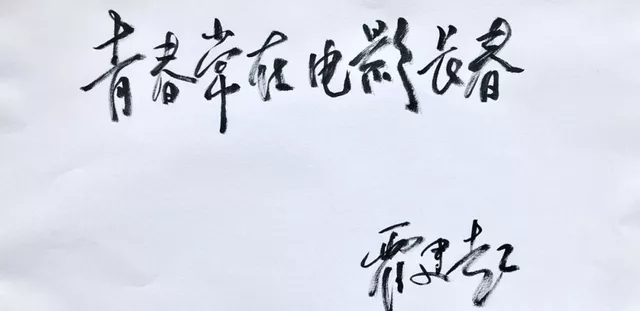 青春常在电影长春
霍建起